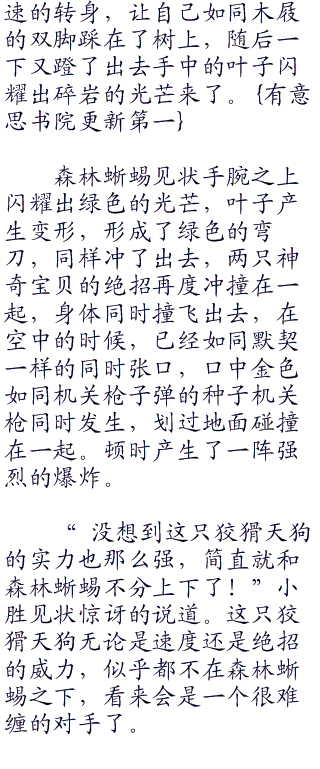 速的转身，让自己如同木屐
的双脚踩在了树上，随后一
下又蹬了出去手中的叶子闪
耀出碎岩的光芒来了。{有意
思书院更新第一}
森林蜥蜴见状手腕之上
闪耀出绿色的光芒，叶子产
生变形，形成了绿色的弯
刀，同样冲了出去，两只神
奇宝贝的绝招再度冲撞在一
起，身体同时撞飞出去，在
空中的时候，已经如同默契
一样的同时张口，口中金色
如同机关枪子弹的种子机关
枪同时发生，划过地面碰撞
在一起。顿时产生了一阵强
烈的爆炸。
“没想到这只狡猾天狗
的实力也那么强，简直就和
森林蜥蜴不分上下了！”小
胜见状惊讶的说道。这只狡
猾天狗无论是速度还是绝招
的威力，似乎都不在森林蜥
蜴之下，看来会是一个很难
缠的对手了。